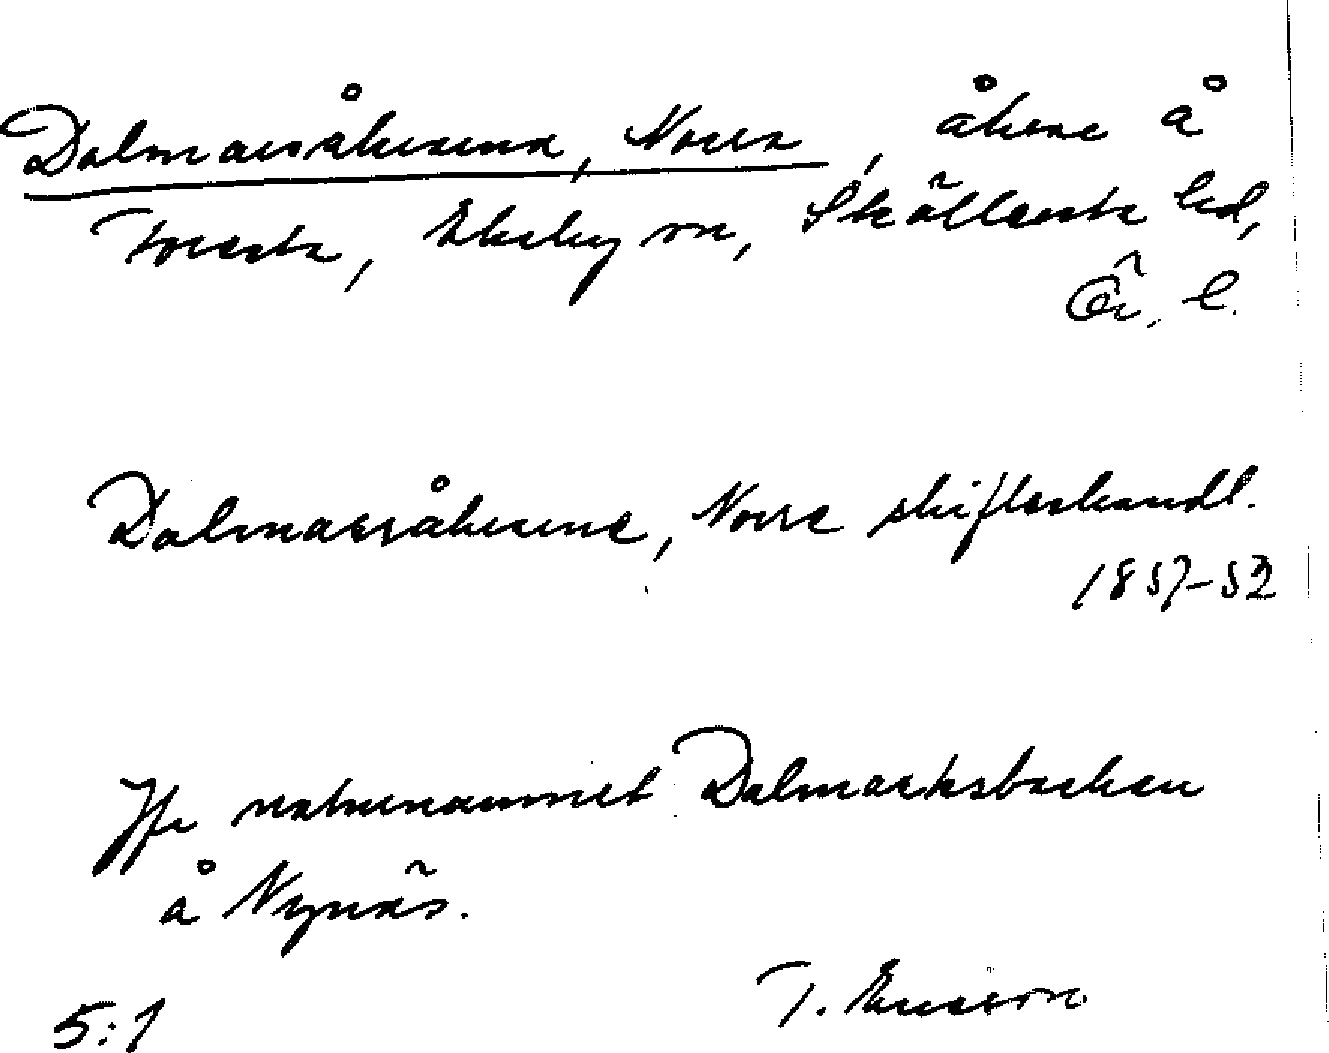 Dalmasåkrarna, Norra, åkrar å
Torsta, Ekeby sn, Sköllersta hd,
Ör. l.
Dalmasåkrarne, Norra skifteshandl.
1857-59
Jfr naturnamnet Dalmarksbacken
å Nynäs.
T. Ericson
5:1